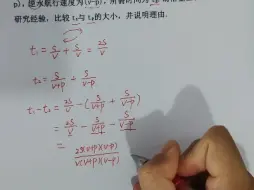 p), 逆水航行速度为(v-p), 所需时间为
研究经验, 比较 t₁与t₂的大小, 并说明理由.
t₁ = S/v + S/v = 2S/v
t₂ = S/(v+p) + S/(v-p)
t₁-t₂ = 2S/v - (S/(v+p) + S/(v-p))
= 2S/v - S/(v+p) - S/(v-p)
= 2S(v+p)(v-p)/v(v+p)(v-p)